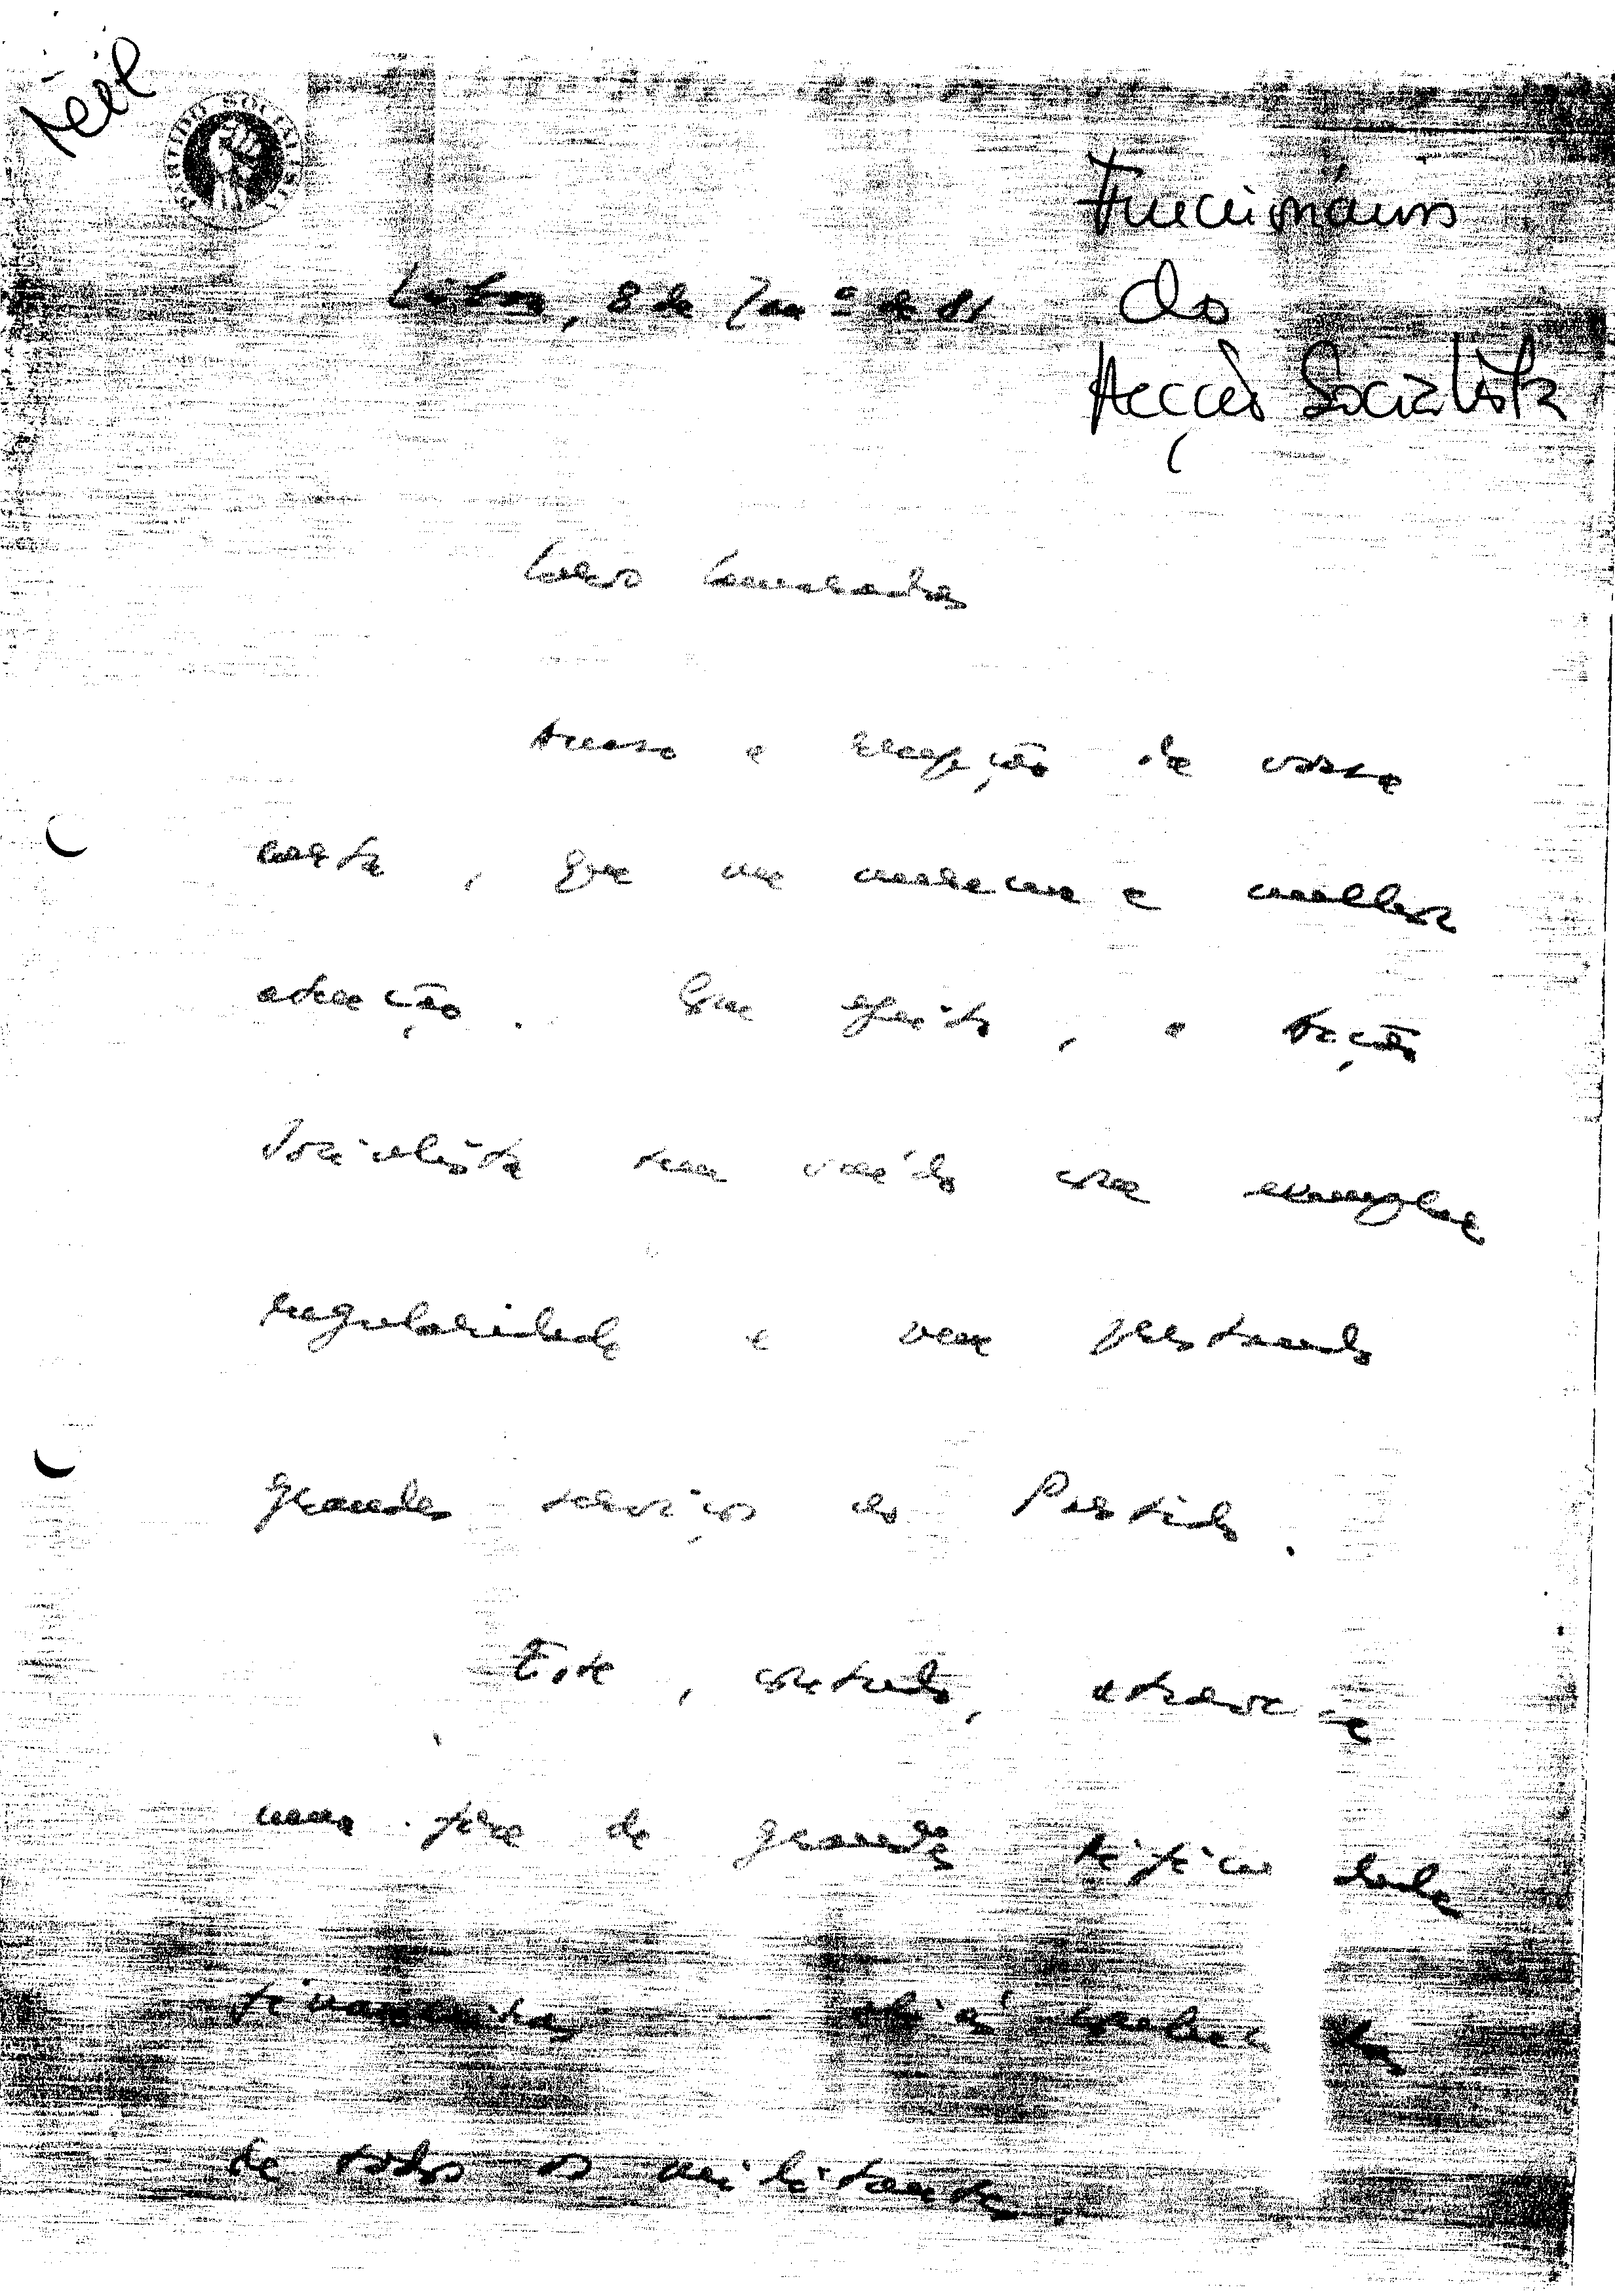 PARTIDO SOCIALISTA
Funcionários
do
Acção Socialista
Lisboa, 8 de Jan.º de 81
Caros Camaradas
Acuso a recepção da vossa
carta, que me mereceu a melhor
atenção. Com efeito, o Acção
Socialista tem saído com exemplar
regularidade e vem prestando
grandes serviços ao Partido.
Este, contudo, atravessa
uma fase de grandes dificuldades
financeiras — aliás conhecidas
de todos os militantes.